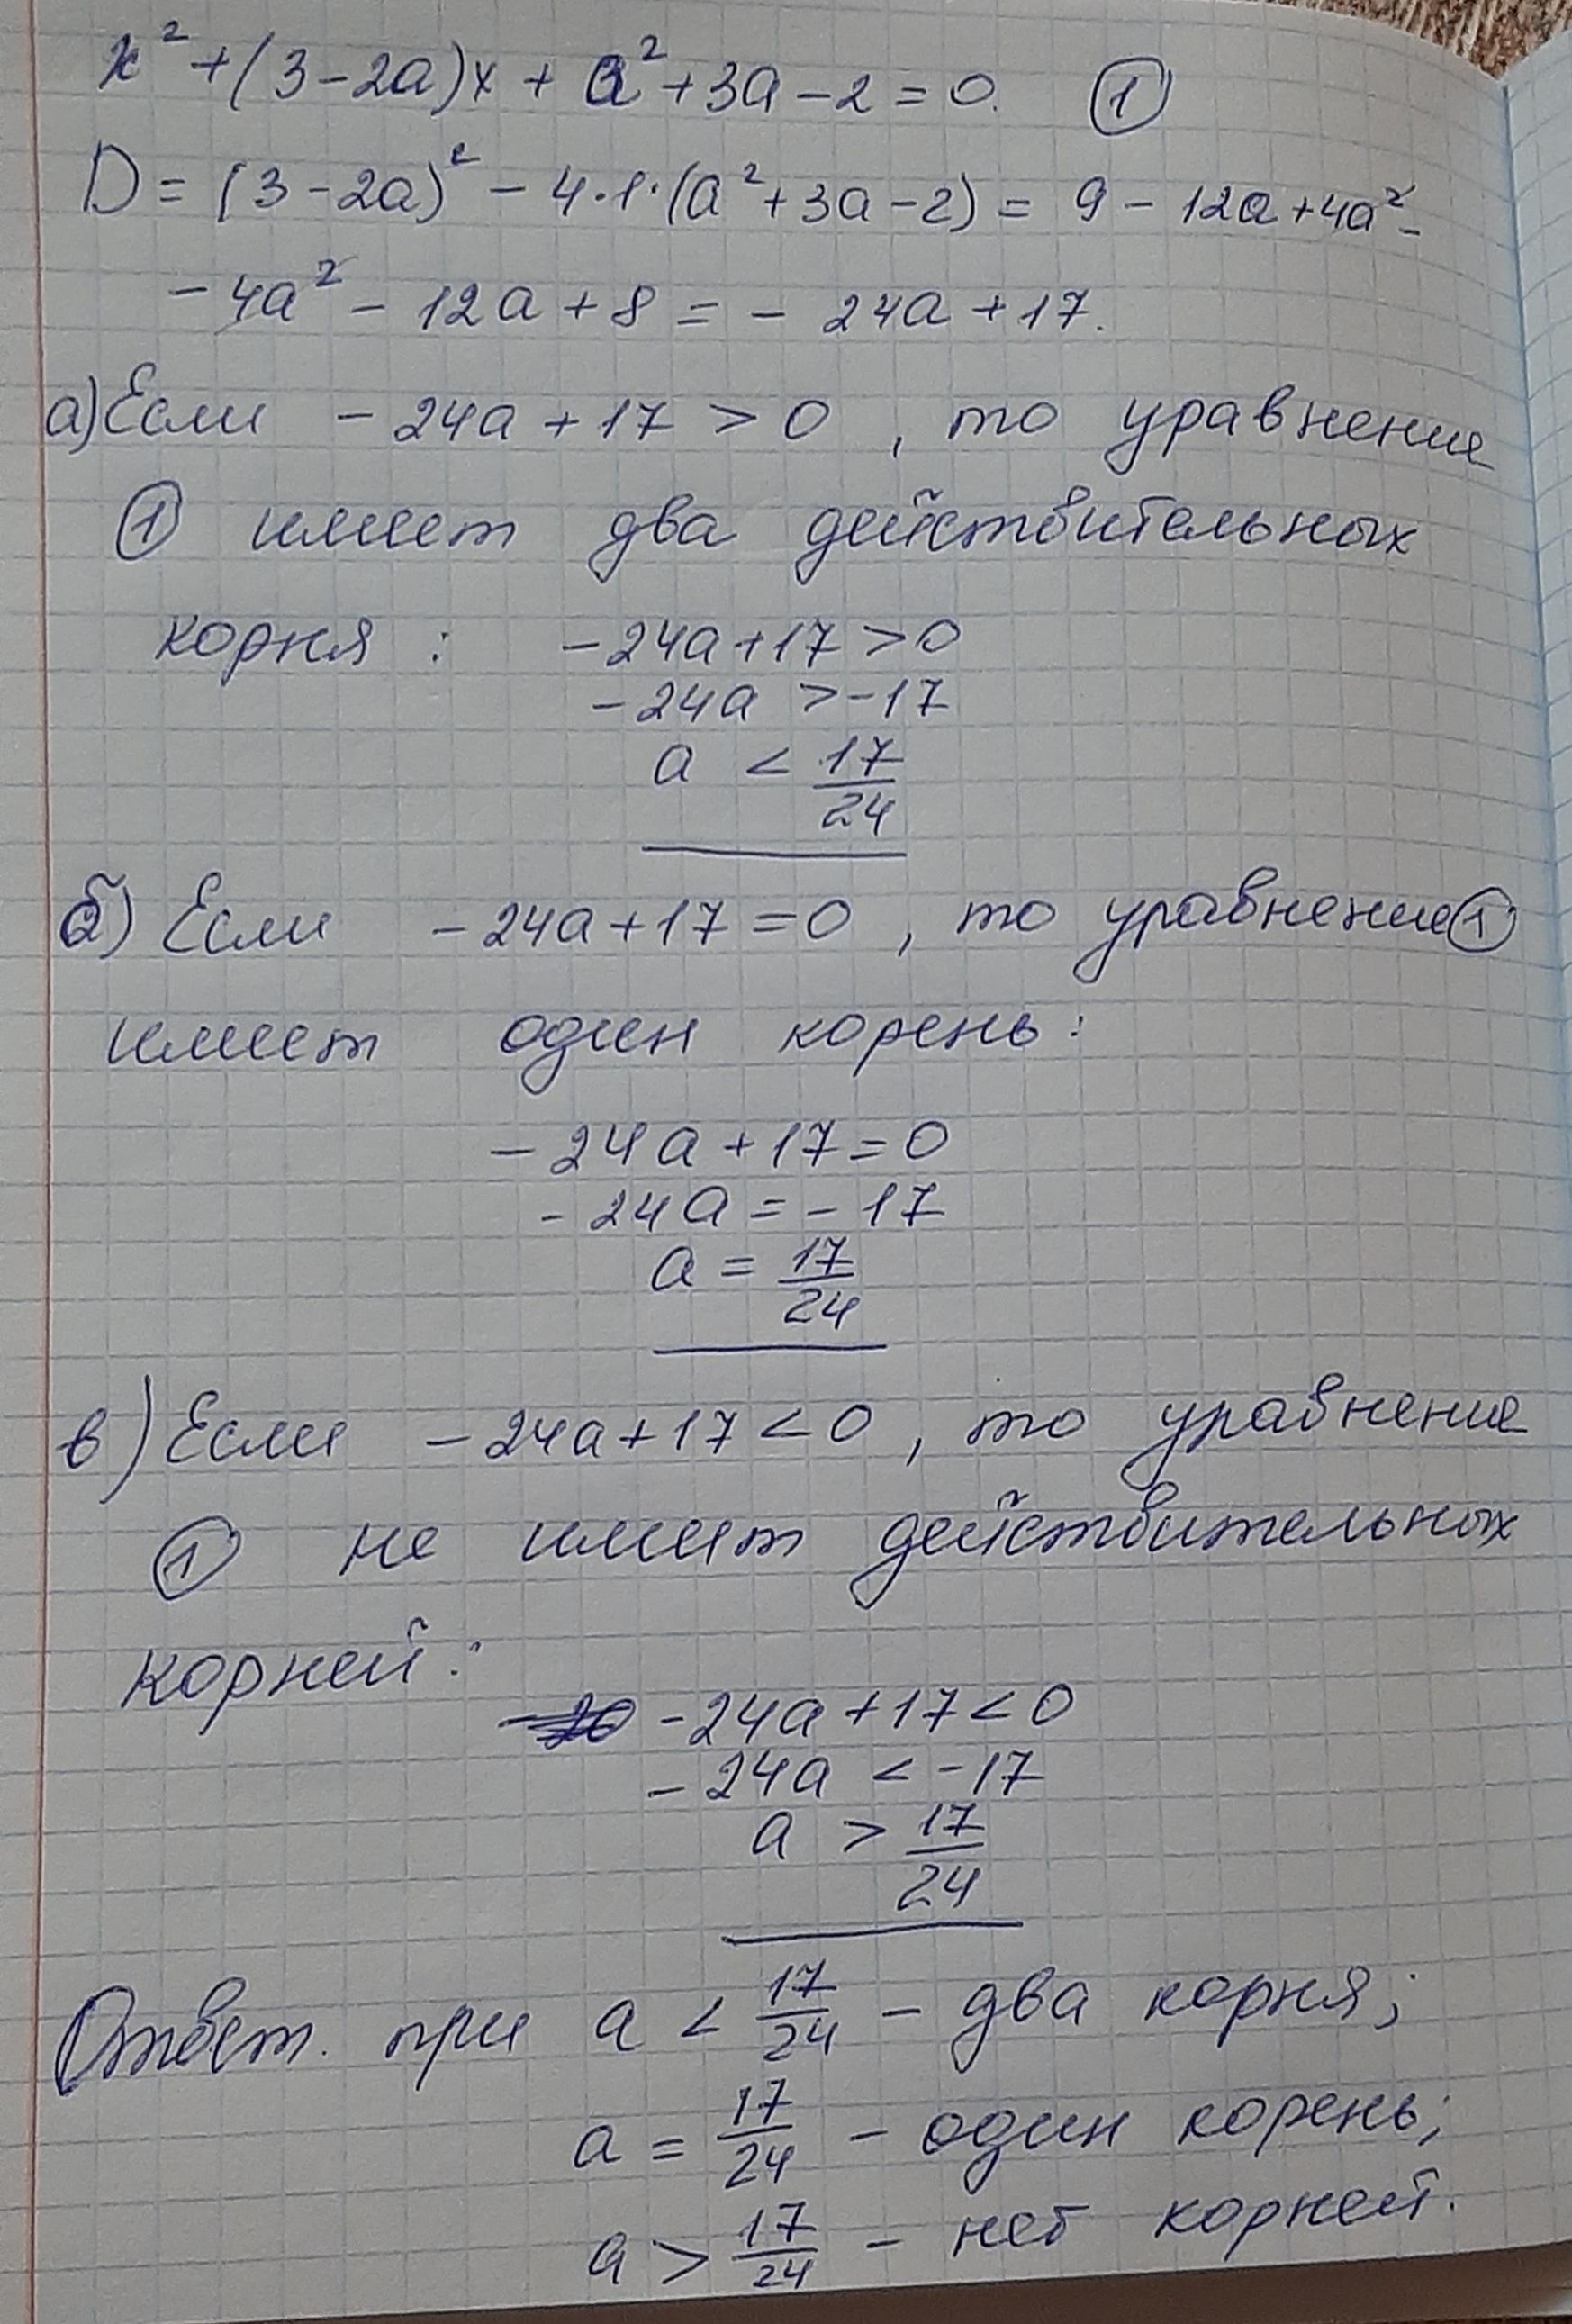 x² + (3 - 2a)x + a² + 3a - 2 = 0. ①
D = (3 - 2a)² - 4·1·(a² + 3a - 2) = 9 - 12a + 4a² -
- 4a² - 12a + 8 = - 24a + 17.
а) Если - 24a + 17 > 0, то уравнение
① имеет два действительных
корня: -24a + 17 > 0
-24a > -17
a < 17/24
б) Если -24a + 17 = 0, то уравнение ①
имеет один корень:
-24a + 17 = 0
-24a = -17
a = 17/24
в) Если -24a + 17 < 0, то уравнение
① не имеет действительных
корней:
-24a + 17 < 0
-24a < -17
a > 17/24
Ответ. при a < 17/24 - два корня;
a = 17/24 - один корень;
a > 17/24 - нет корней.